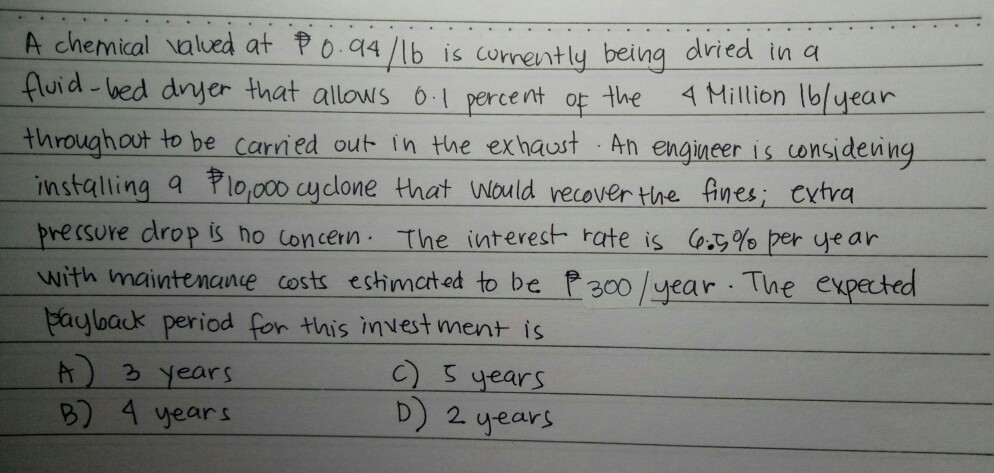 A chemical valued at ₱ 0.94/lb is currently being dried in a
fluid-bed dryer that allows 0.1 percent of the 4 Million lb/year
throughout to be carried out in the exhaust. An engineer is considering
installing a ₱10,000 cyclone that would recover the fines; extra
pressure drop is no concern. The interest rate is 6.5% per year
with maintenance costs estimated to be ₱300/year. The expected
payback period for this investment is
A) 3 years C) 5 years
B) 4 years D) 2 years